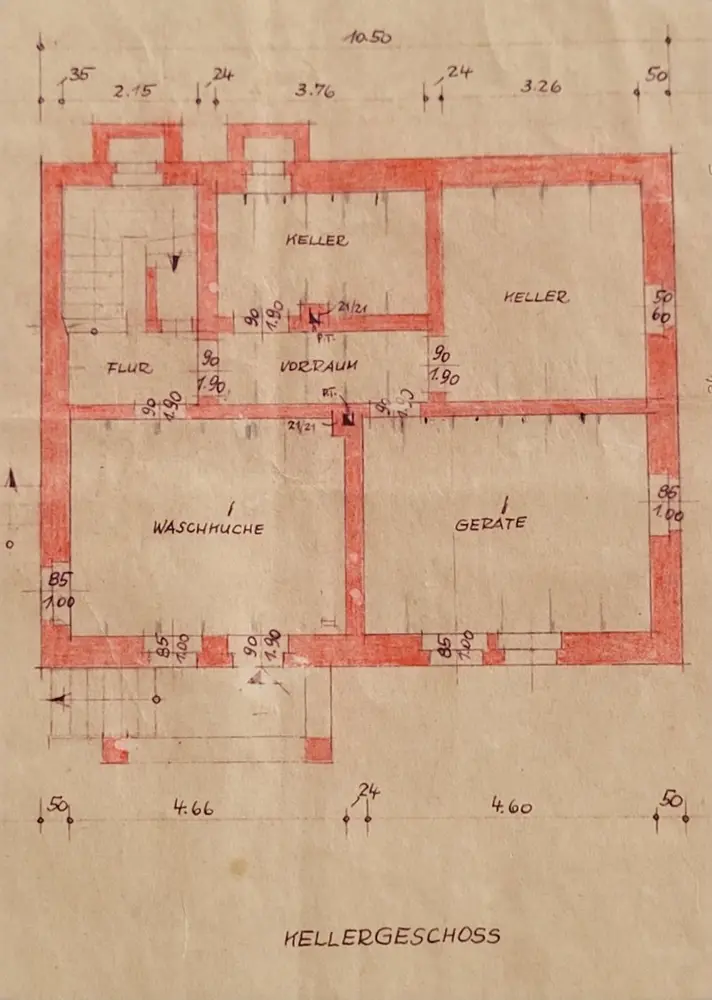 10.50
35 2.15 24 3.76 24 3.26 50
KELLER
KELLER
21/21
50
60
90
1.90
P.T.
FLUR
90
1.90
VORRAUM
90
1.90
90
1.90
P.T.
21/21
90
1.90
WASCHKÜCHE
GERÄTE
85
1.00
85
1.00
85
1.00
90
1.90
85
1.00
50 4.66 24 4.60 50
KELLERGESCHOSS